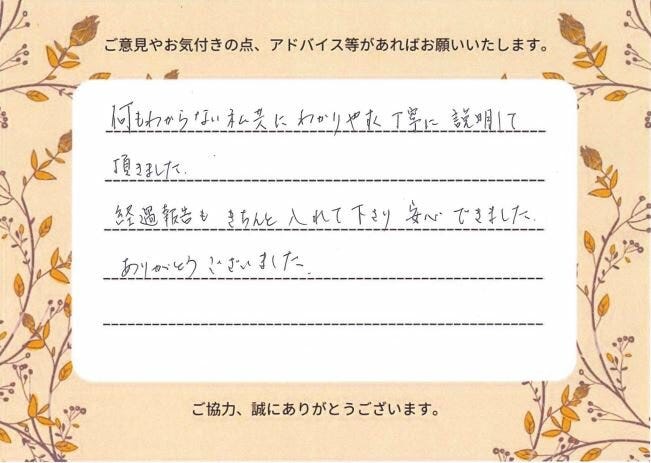 ご意見やお気付きの点、アドバイス等があればお願いいたします。
何もわからない私共にわかりやすく丁寧に説明して
頂きました。
経過報告もきちんと入れて下さり安心できました。
ありがとうございました。
ご協力、誠にありがとうございます。